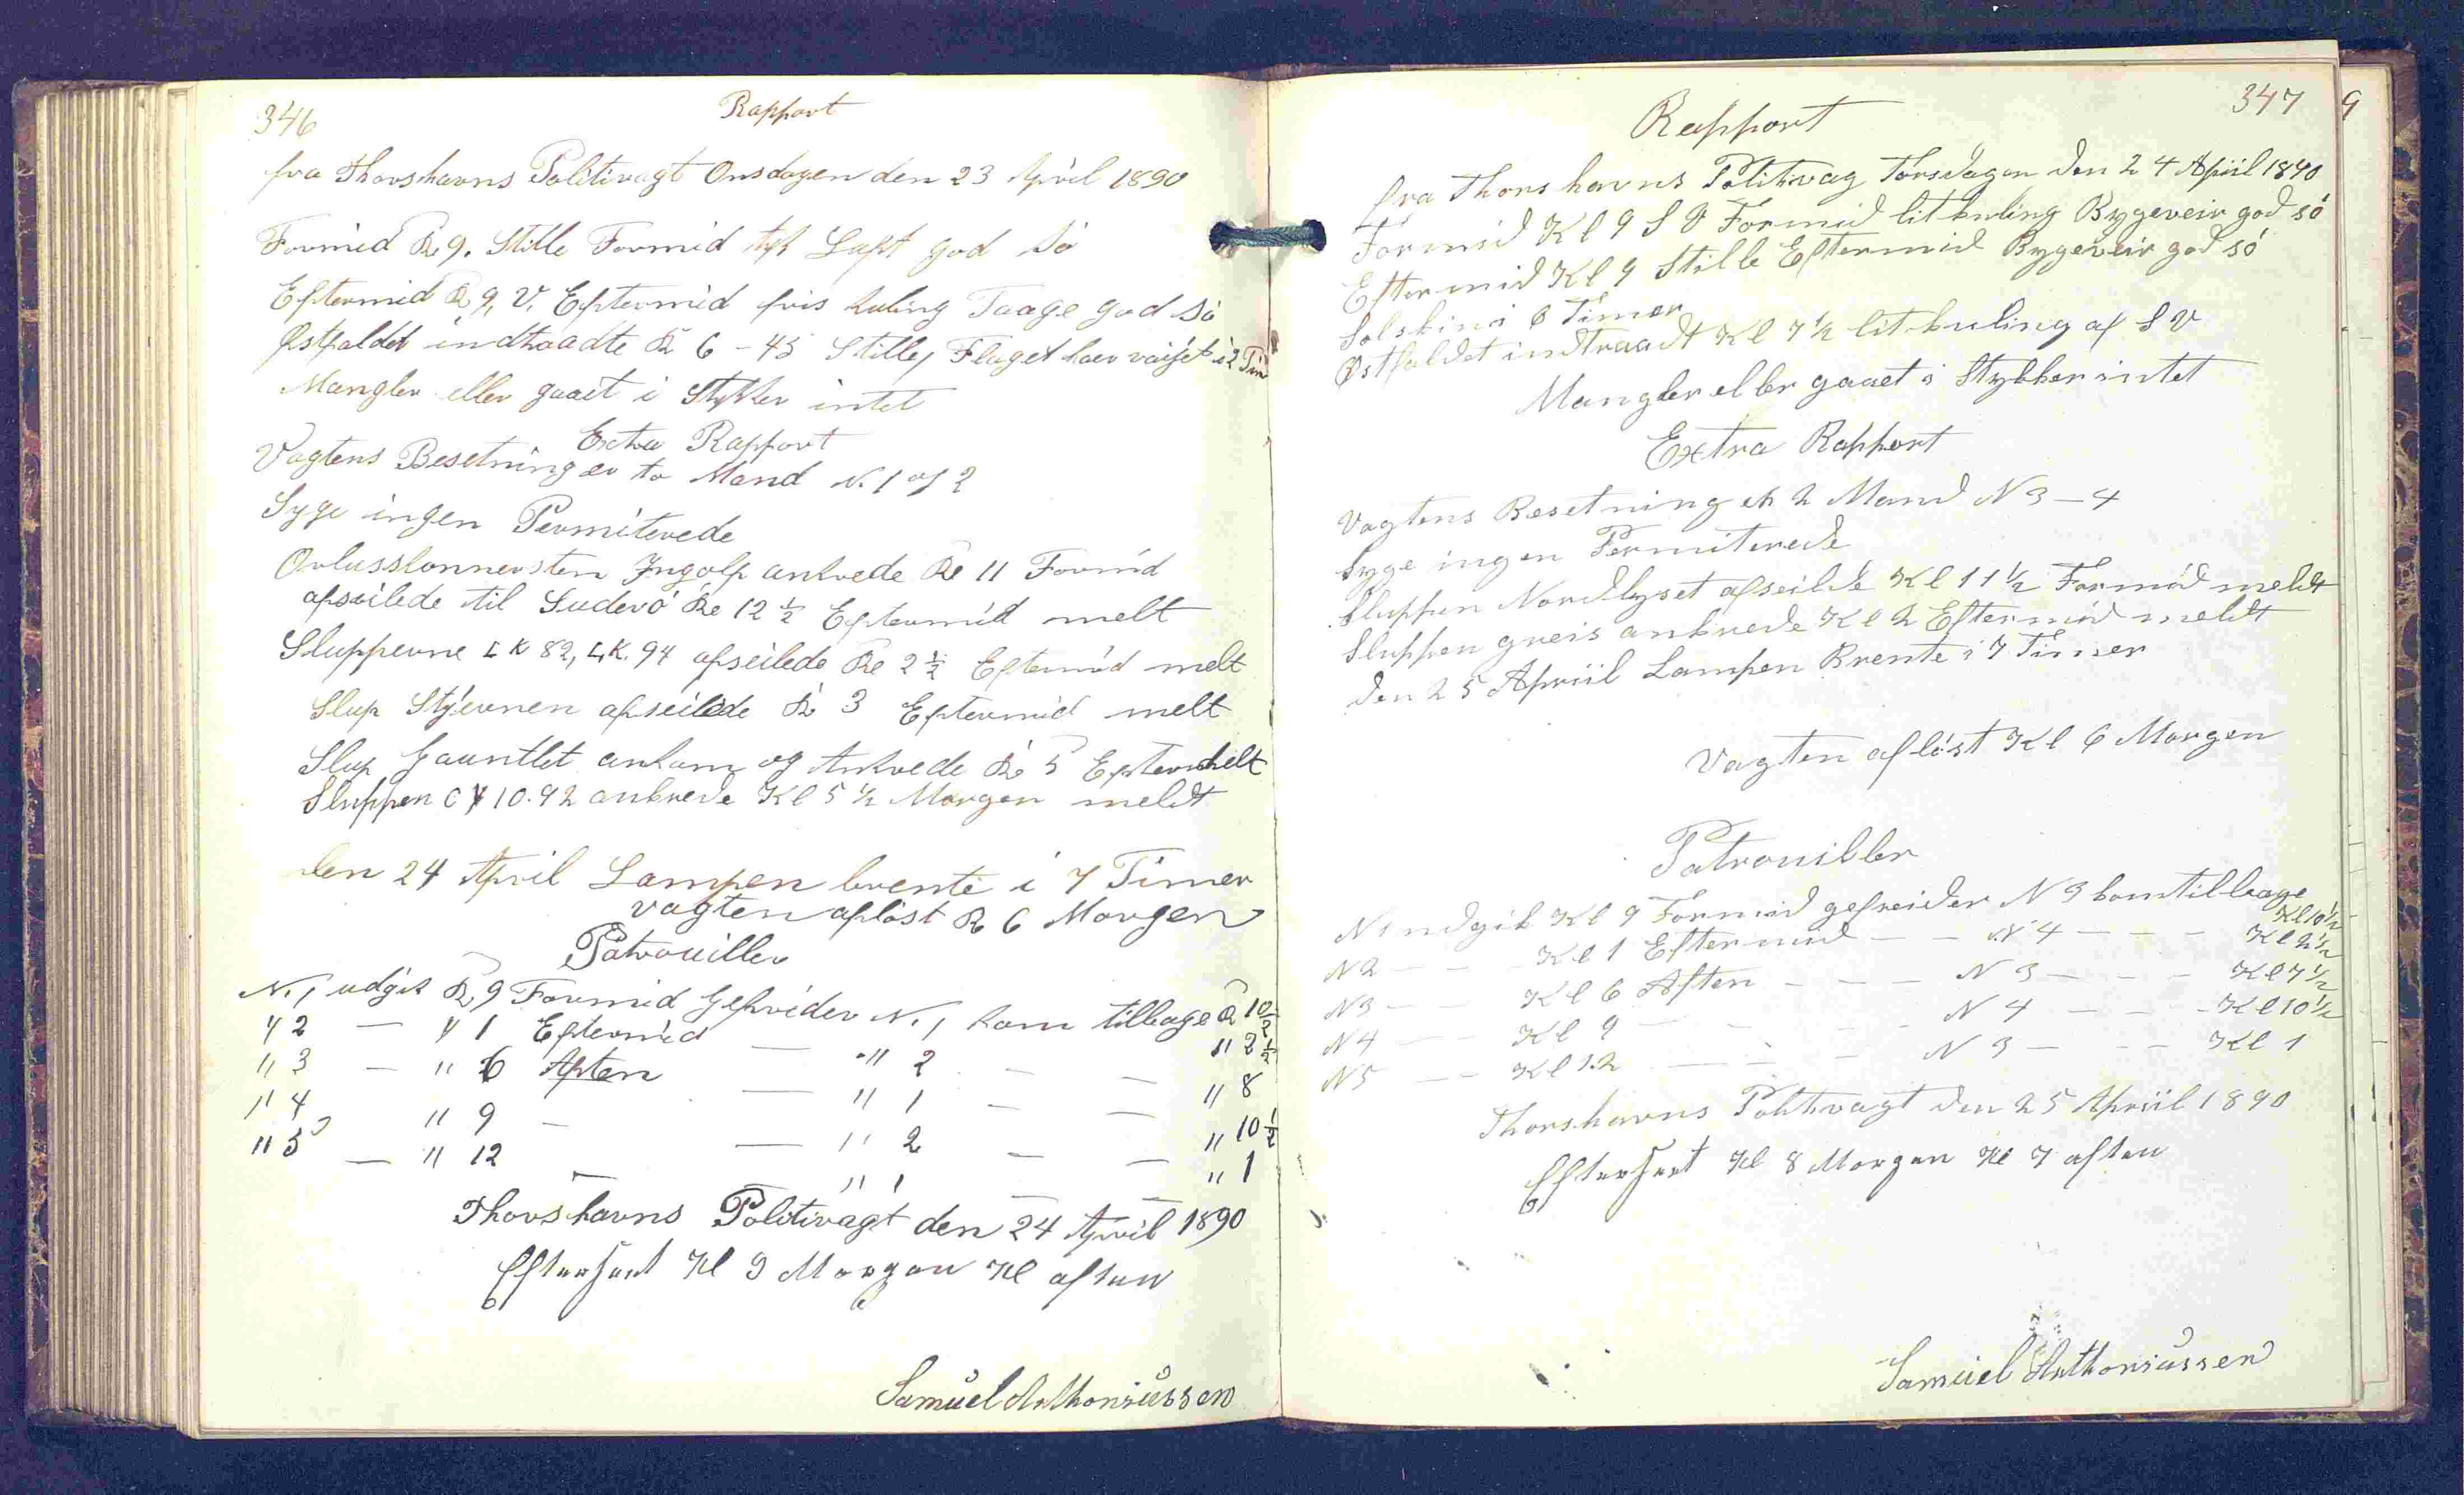 346
Rapport
fra Thorshavns Politivagt Onsdagen den 23 April 1890
Formid Kl 9. Stille Formid tyk Luft god Sö
Eftermid Kl 9, V. Eftermid fris kuling Taage god Sö
Østfaldet indtraadte Kl 6 - 45 Stille, Flaget haer vaijet i 2 Tim
Mangler eller gaaet i Stykker intet
Extra Rapport
Vagtens Besetning er to Mand N. 1 og 2
Syge ingen Permiterede
Orlusslonnersten Ingolf ankrede Kl 11 Formid
afseilede til Suderö Kl 12 ½ Eftermid melt
Slupperne LK 82, LK. 94 afseilede Kl 2 ½ Eftemid melt
Slup Stjernen afseilede Kl 3 Eftermid melt
Slup Gauntlet ankom og Ankrede Kl 5 Efterm melt
Sluppen C Y 10.92 ankrede Kl 5 ½ Morgen meldt
den 24 April Lampen brente i 7 Timer
vagten aflöst Kl 6 Morgen
Patrouiller
N. 1 udgik Kl 9 Formid Gefreider N. 1 kom tilbage Kl 10 ½
" 2 — " 1 Eftermid — " 2 — — " 2 ½
" 3 — " 6 Aften — " 1 — — " 8
" 4 " 9 — — " 2 — — " 10 ½
" 5 — " 12 — " 1 — — " 1
Thorshavns Politivagt den 24 April 1890
Efterseet Kl 9 Morgen Kl aften
Samuel Anthoniussen
347
Rapport
fra Thorshavns Politivag Torsdagen den 24 Apriil 1890
Formid Kl 9 S V Formid lit kuling Bygeveir god só
Eftermid Kl 9 Stille Eftermid Bygeveir god só
Solskin i 6 Timer
Østfaldet indtraadt Kl 7 ½ lit kuling af S V
Mangler eller gaaet i Stykker intet
Extra Rapport
Vagtens Besetning er 2 Mand N 3 — 4
Syge ingen Permiterede
Sluppen Nordlyset afseilde Kl 11 ½ Formid meldt
Sluppen greis ankrede Kl 2 Eftermid meldt
den 25 Apriil Lampen Brente i 7 Timer
Vagten aflöst Kl 6 Morgen
Patrouiller
N 1 udgik Kl 9 Formid gefreider N 3 kom tilbage Kl 10 ½
N 2 — — Kl 1 Eftermid — — N 4 — — — Kl 2 ½
N 3 — — Kl 6 Aften — — — N 3 — — — Kl 7 ½
N 4 — — Kl 9 — — — N 4 — — — Kl 10 ½
N 5 — — Kl 12 — — — N 3 — — — Kl 1
Thorshavns Politivagt den 25 Apriil 1890
Efterseet Kl 8 Morgen Kl 7 aften
Samuel Anthoniussen